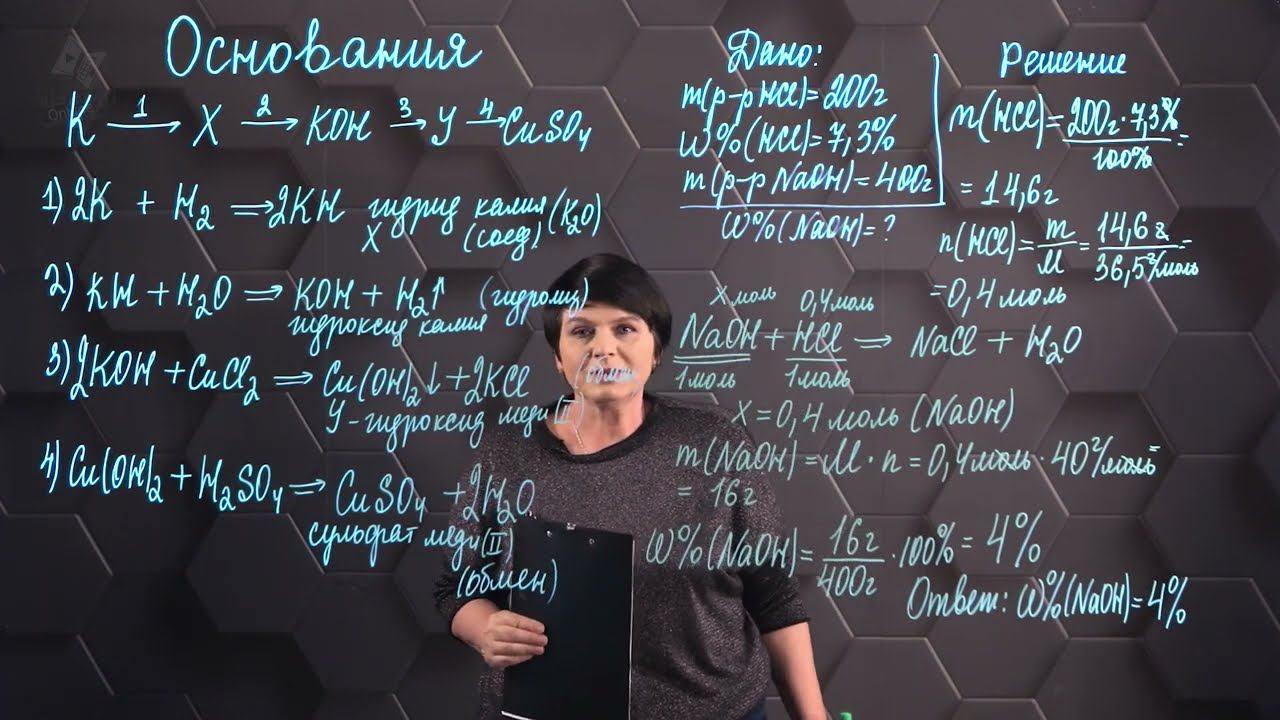 Основания
K —1→ X —2→ KOH —3→ У —4→ CuSO₄
1) 2K + H₂ ⇒ 2KH гидрид калия (K₂O)
X (соед.)
2) KH + H₂O ⇒ KOH + H₂↑ (гидролиз)
гидроксид калия
3) 2KOH + CuCl₂ ⇒ Cu(OH)₂↓ + 2KCl (обмен
У - гидроксид меди (II)
4) Cu(OH)₂ + H₂SO₄ ⇒ CuSO₄ + 2H₂O
сульфат меди (II)
(обмен)
Дано:
m(р-р HCl) = 200г
W%(HCl) = 7,3%
m(р-р NaOH) = 400г
W%(NaOH) = ?
Решение
m(HCl) = 200г · 7,3% / 100% =
= 14,6г
n(HCl) = m / M = 14,6г / 36,5 г/моль =
= 0,4 моль
X моль 0,4 моль
NaOH + HCl ⇒ NaCl + H₂O
1 моль 1 моль
X = 0,4 моль (NaOH)
m(NaOH) = M · n = 0,4 моль · 40 г/моль =
= 16г
W%(NaOH) = 16г / 400г · 100% = 4%
Ответ: W%(NaOH) = 4%